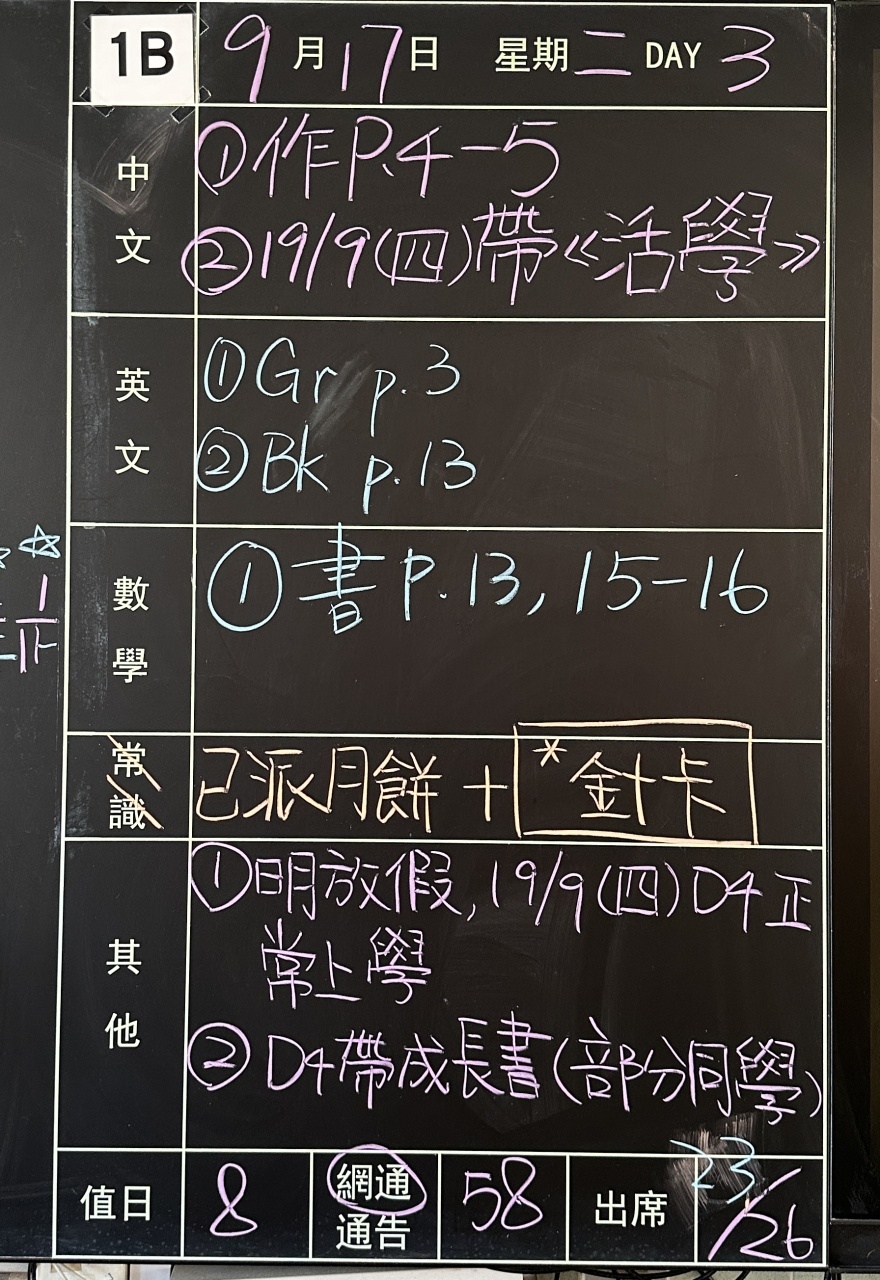 1B 9月17日 星期二 DAY 3
中文
①作P.4-5
②19/9(四)帶《活學》
英文
①Gr p.3
②Bk p.13
數學
①書P.13, 15-16
常識
已派月餅+*針卡
其他
①明放假,19/9(四)D4正
常上學
②D4帶成長書(部分同學)
值日 8 網通 通告 58 出席 23/26